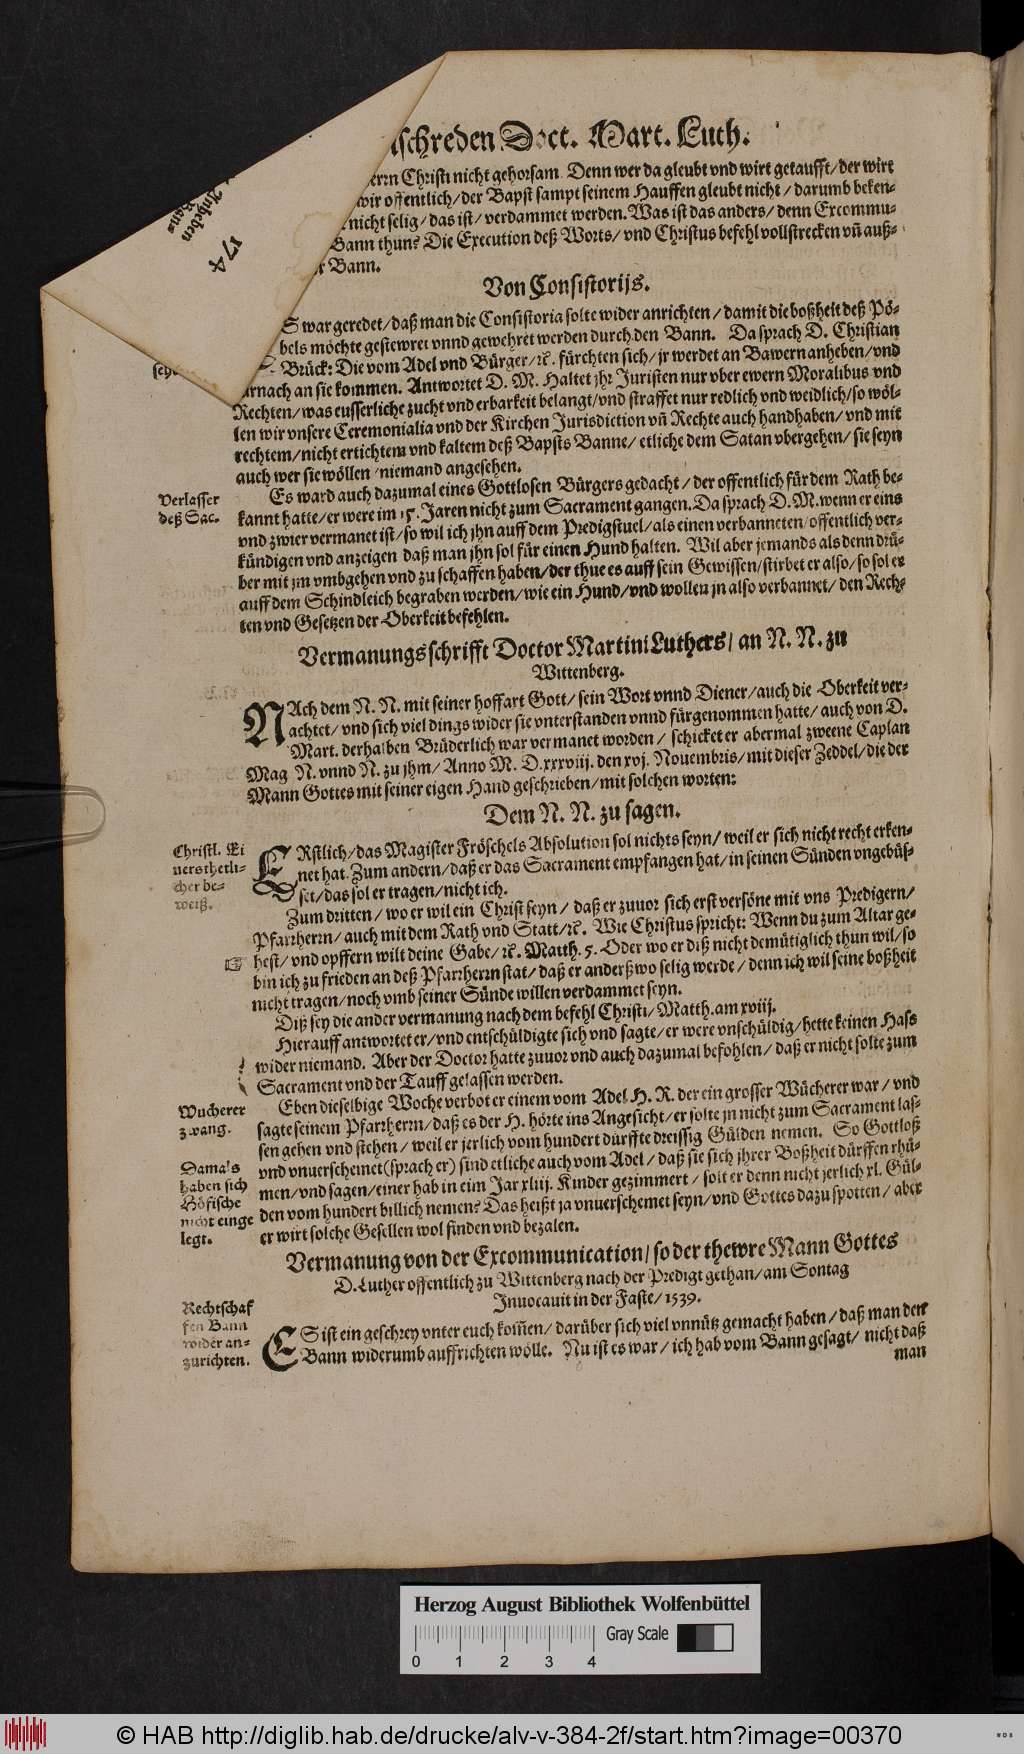 schreden Doct. Mart. Luth.
herrn Christi nicht gehorsam. Denn wer da gleubt vnd wirt getaufft/der wirt
wir offentlich/der Bapst sampt seinem Hauffen gleubt nicht/darumb beken-
nicht selig/das ist/verdammet werden. Was ist das anders/denn Excommu-
Bann thun? Die Execution deß Worts/vnd Christus befehl vollstrecken vñ auß-
Bann.
174
Von Consistorijs.
S war geredet/daß man die Consistoria solte wider anrichten/damit die boßheit deß Pö-
bels möchte gestewret vnnd gewehret werden durch den Bann. Da sprach D. Christian
Brück: Die vom Adel vnd Bürger/ꝛc. fürchten sich/jr werdet an Bawern anheben/vnd
darnach an sie kommen. Antwortet D. M. Haltet jhr Juristen nur vber ewern Moralibus vnd
Rechten/was eusserliche zucht vnd erbarkeit belangt/vnd straffet nur redlich vnd weidlich/so wöl-
len wir vnsere Ceremonialia vnd der Kirchen Jurisdiction vñ Rechte auch handhaben/vnd mit
rechtem/nicht ertichtem vnd kaltem deß Bapsts Banne/etliche dem Satan vbergehen/sie seyn
auch wer sie wöllen/niemand angesehen.
Verlasser
deß Sac.
Es ward auch dazumal eines Gottlosen Bürgers gedacht/der offentlich für dem Rath be-
kannt hatte/er were im 15. Jaren nicht zum Sacrament gangen. Da sprach D. M. wenn er eins
vnd zwier vermanet ist/so wil ich jhn auff dem Predigstuel/als einen verbanneten/offentlich ver-
kündigen vnd anzeigen daß man jhn sol für einen Hund halten. Wil aber jemands als denn drü-
ber mit jm vmbgehen vnd zu schaffen haben/der thue es auff sein Gewissen/stirbet er also/so sol er
auff dem Schindleich begraben werden/wie ein Hund/vnd wollen jn also verbannet/den Rech-
ten vnd Gesetzen der Oberkeit befehlen.
Vermanungsschrifft Doctor Martini Luthers/an N. N. zu
Wittenberg.
NAch dem N. N. mit seiner hoffart Gott/sein Wort vnnd Diener/auch die Oberkeit ver-
achtet/vnd sich viel dings wider sie vnterstanden vnnd fürgenommen hatte/auch von D.
Mart. derhalben Brüderlich war vermanet worden/schicket er abermal zweene Caplan
Mag N. vnnd N. zu jhm/Anno M. D. xxxviij. den xvj. Nouembris/mit dieser Zeddel/die der
Mann Gottes mit seiner eigen Hand geschrieben/mit solchen worten:
Dem N. N. zu sagen.
Christl. Ei
uers
cher be-
weiß.
ERstlich/das Magister Fröschels Absolution sol nichts seyn/weil er sich nicht recht erken-
net hat. Zum andern/daß er das Sacrament empfangen hat/in seinen Sünden vngebüs-
set/das sol er tragen/nicht ich.
Zum dritten/wo er wil ein Christ seyn/daß er zuuor sich erst versöne mit vns Predigern/
Pfarrherrn/auch mit dem Rath vnd Statt/ꝛc. Wie Christus spricht: Wenn du zum Altar ge-
hest/vnd opffern wilt deine Gabe/ꝛc. Matth. 5. Oder wo er diß nicht demütiglich thun wil/so
bin ich zu frieden an deß Pfarrherrn stat/daß er anderßwo selig werde/denn ich wil seine boßheit
nicht tragen/noch vmb seiner Sünde willen verdammet seyn.
Diß sey die ander vermanung nach dem befehl Christi/Matth. am xviij.
Hierauff antwortet er/vnd entschüldigte sich vnd sagte/er were vnschüldig/hette keinen Hass
wider niemand. Aber der Doctor hatte zuuor vnd auch dazumal befohlen/daß er nicht solte zum
Sacrament vnd der Tauff gelassen werden.
Wucherer
zwang.
Damals
haben sich
Höfische
nicht einge
legt.
Eben dieselbige Woche verbot er einem vom Adel H. R. der ein grosser Wücherer war/vnd
sagte seinem Pfarrherrn/daß es der H. hörte ins Angesicht/er solte jn nicht zum Sacrament las-
sen gehen vnd stehen/weil er jerlich vom hundert dürffte dreissig Gülden nemen. So Gottloß
vnd vnuerschemet (sprach er) sind etliche auch vom Adel/daß sie sich jhrer Boßheit dürffen rhü-
men/vnd sagen/einer hab in eim Jar xliij. Kinder gezimmert/solt er denn nicht jerlich xl. Gül-
den vom hundert billich nemen? Das heißt ja vnuerschemet seyn/vnd Gottes dazu spotten/aber
er wirt solche Gesellen wol finden vnd bezalen.
Vermanung von der Excommunication/so der thewre Mann Gottes
D. Luther offentlich zu Wittenberg nach der Predigt gethan/am Sontag
Inuocauit in der Faste/1539.
Rechtschaf
fen Bann
wider an-
zurichten.
ES ist ein geschrey vnter euch kom̃en/darüber sich viel vnnütz gemacht haben/daß man den
Bann widerumb auffrichten wölle. Nu ist es war/ich hab vom Bann gesagt/nicht daß
man
Herzog August Bibliothek Wolfenbüttel
Gray Scale
0 1 2 3 4
© HAB http://diglib.hab.de/drucke/alv-v-384-2f/start.htm?image=00370